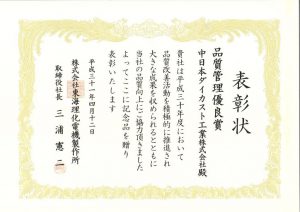 表彰状
品質管理優良賞
中日本ダイカスト工業株式会社殿
貴社は平成三十年度において
品質改善活動を積極的に推進され
大きな成果を収められるとともに
当社の品質向上にご協力頂きました
よってここに記念品を贈り
表彰いたします
平成三十一年四月十二日
株式会社東海理化電機製作所
取締役社長 三浦憲二